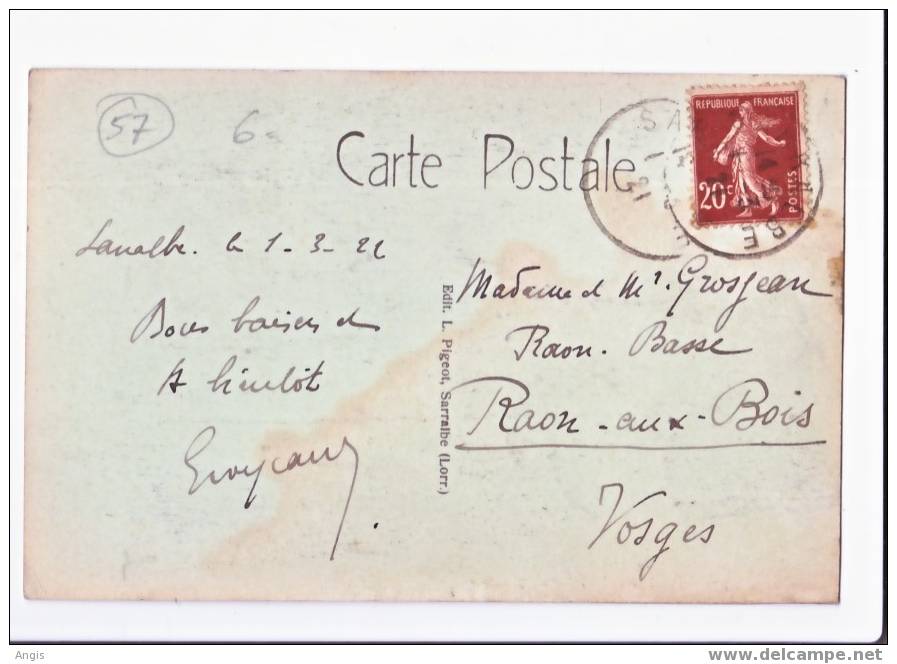 57
6
Carte Postale
REPUBLIQUE FRANÇAISE
20c
POSTES
Sarralbe. le 1-3-22
Bons baisers et
A bientôt
Grosjean
Edit. L. Pigeot, Sarralbe (Lorr.)
Madame et Mr. Grosjean
Raon-Basse
Raon-aux-Bois
Vosges
Angis
www.delcampe.net